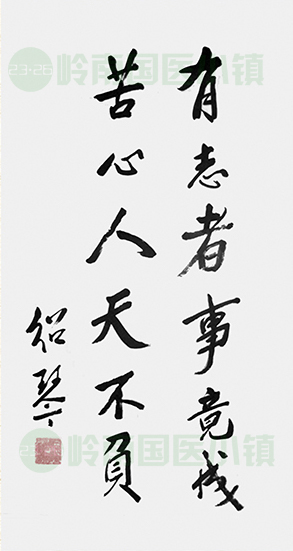 有志者事竟成
苦心人天不負
绍琴
23·26 岭南国医小镇
岭南国医小镇